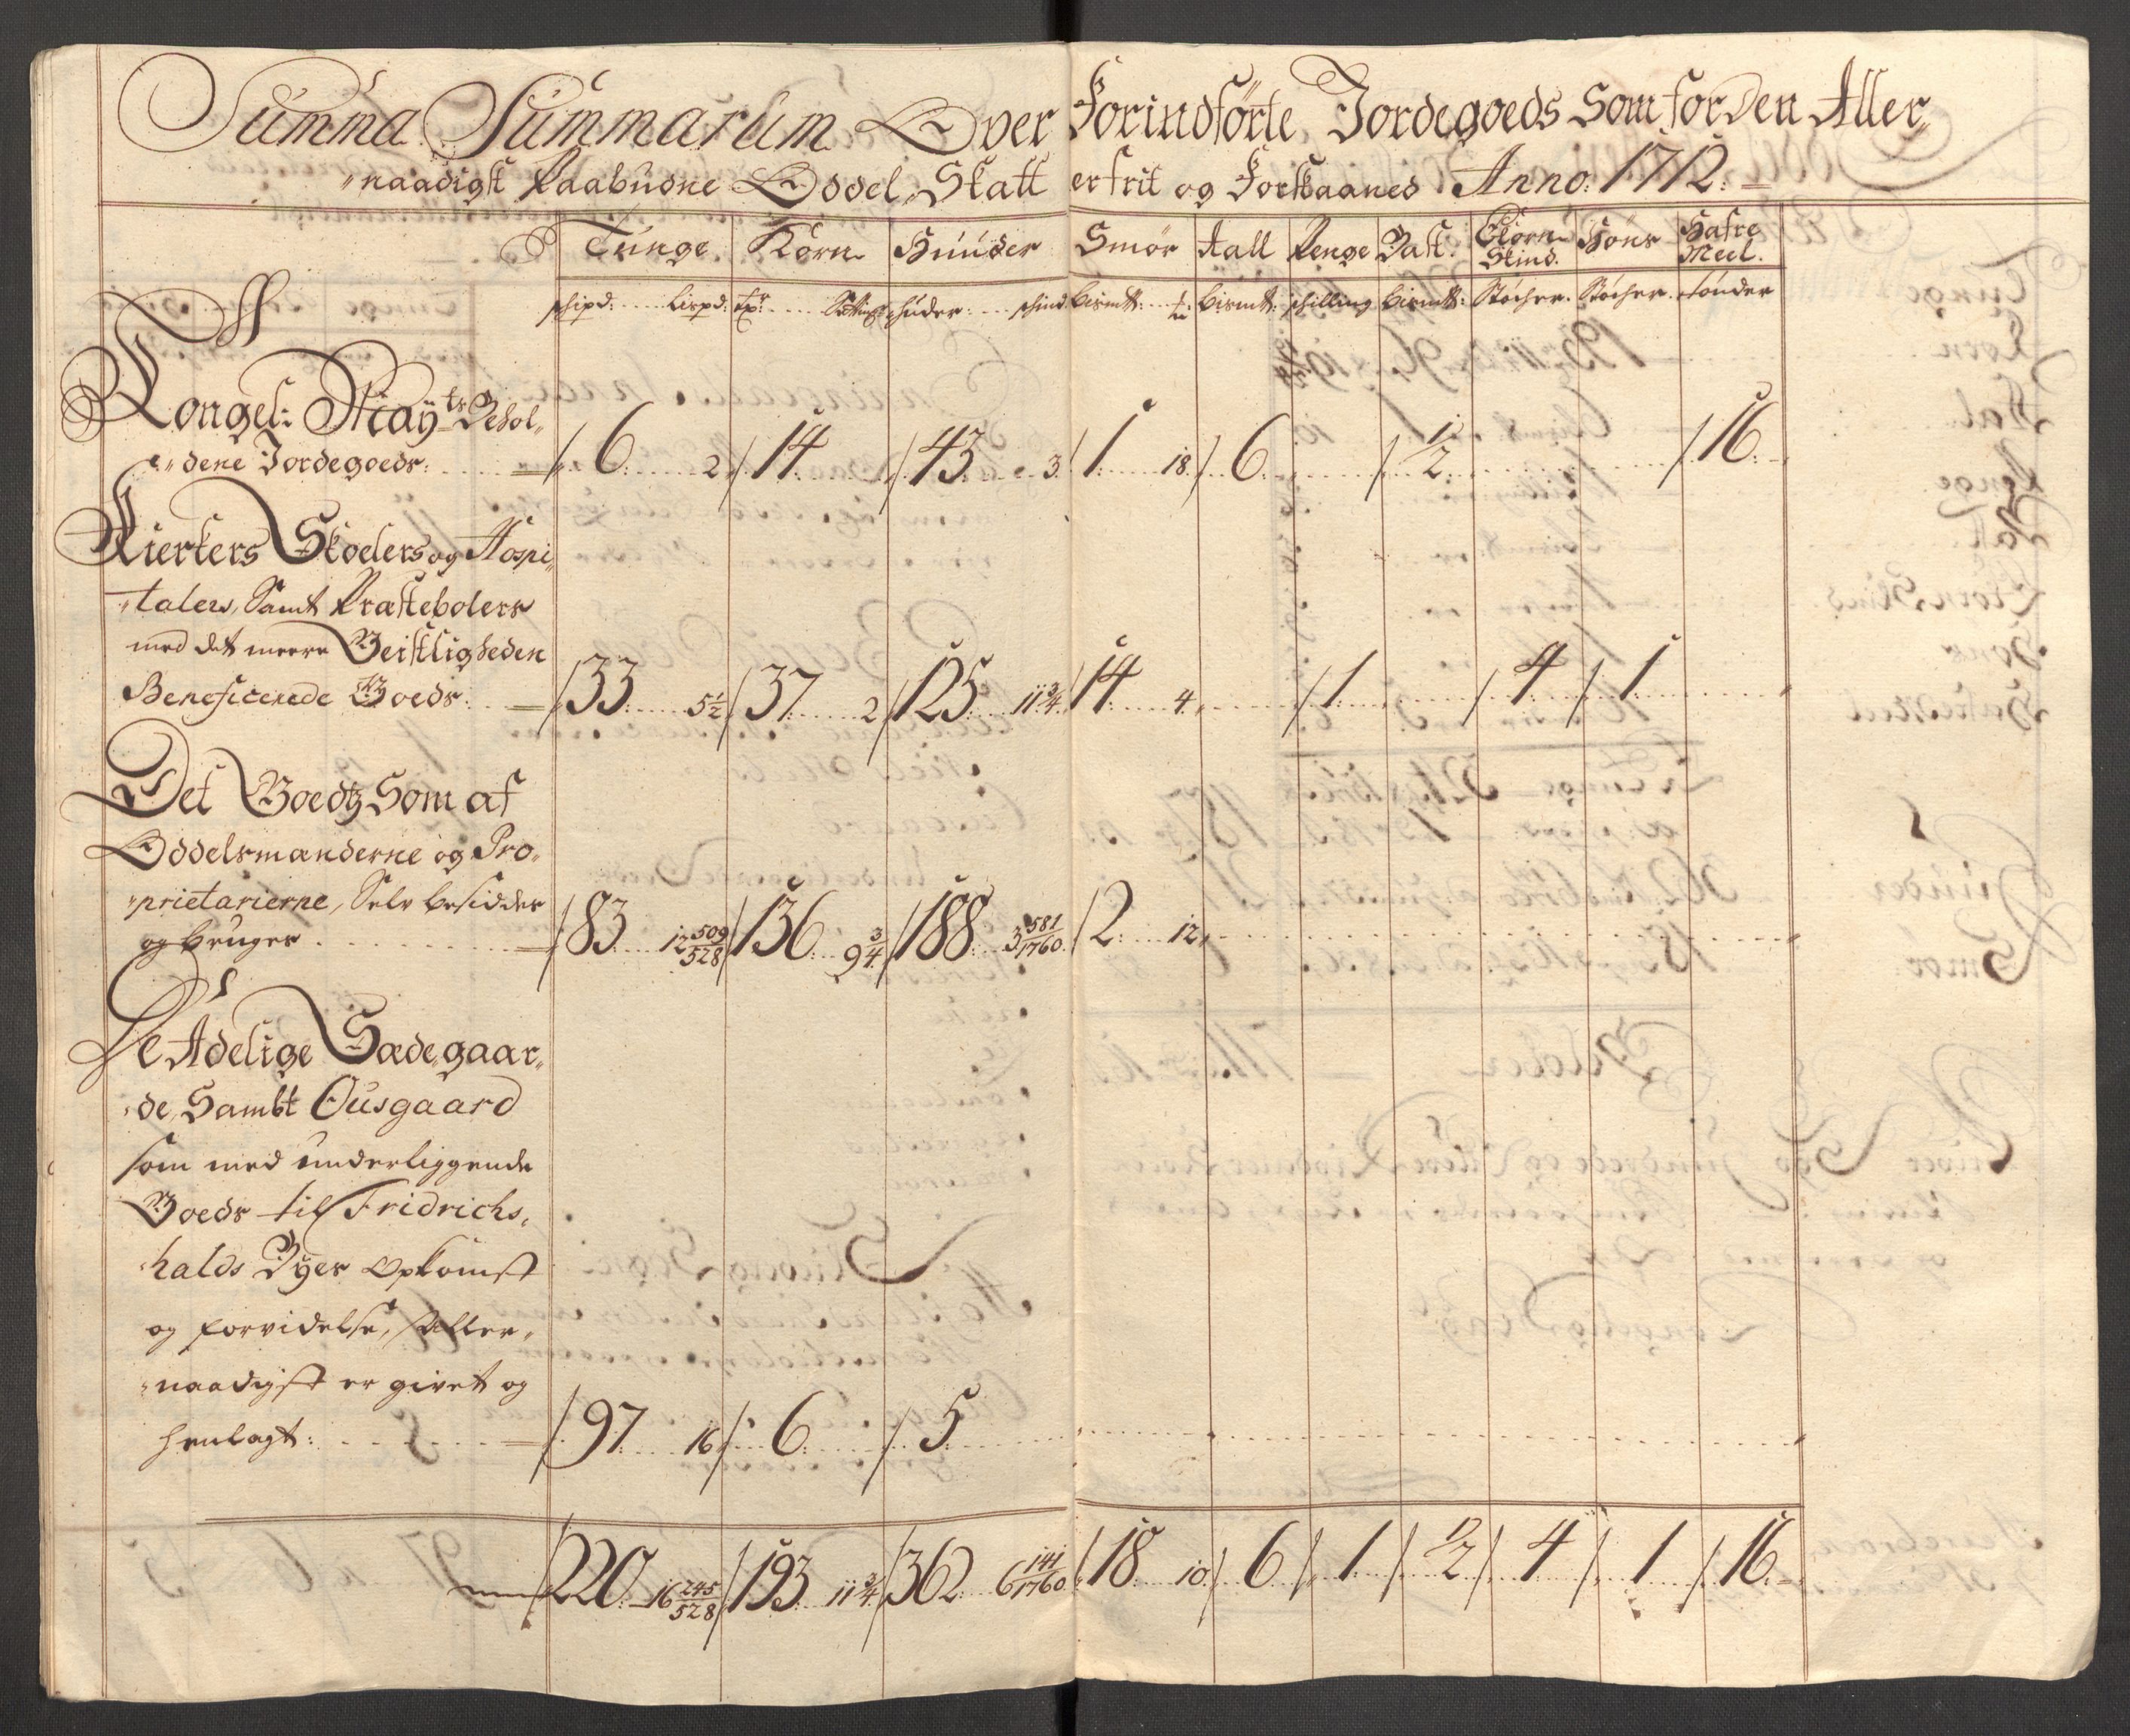 Summa Summarum Over Forindførte Jordegoeds Som for Den Aller„
„naadigst Paabudne Oddel„Skatt er frit og Forskaanes Anno: 1712:
Tunge Korn Huuder Smør Aall Penge Salt Biørn Skind Høns Hafre Meel
schipd: Lispd: huder: schind bismtt: bismtt: schilling bismtt: Støcher Støcher tønder
Kongel: Mayts Behol„
„dene Jordegoeds: 6 2 14 43 3 1 18 6 1/2 16
Kierkers Skoelers og Hospi„
„talers, Samt Præstebolers
med det meere Geistligheden
Beneficerede Goeds: 33 5½ 37 2 125 11¾ 14 4 1 4 1
Det Goedtz Som af
Oddelsmænderne og Pro„
„prietarierne, Selv besidder
og bruger 83 12 509/528 136 9¾ 188 3 581/1760 2 12
De Adelige Sædegaar„
„de, Sambt Ousgaard
som med underliggende
Goeds til Fridrichs„
halds Byes Opkomst
og forvidelse, Aller„
„naadigst er givet og
henlagt: 97 16 6 5
220 16 245/528 193 11¾ 362 6 141/1760 18 10 6 1 1/2 4 1 16